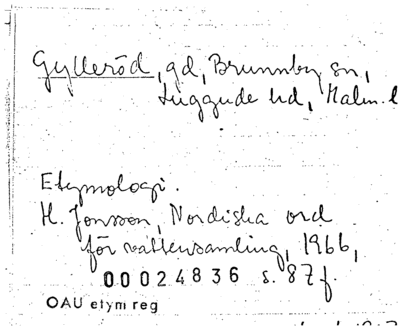 Gylleröd, gd, Brunnby sn,
Luggude hd, Malm. l
Etymologi.
H. Jonsson, Nordiska ord
för vattensamling, 1966,
00024836 s. 87 f.
OAU etym reg